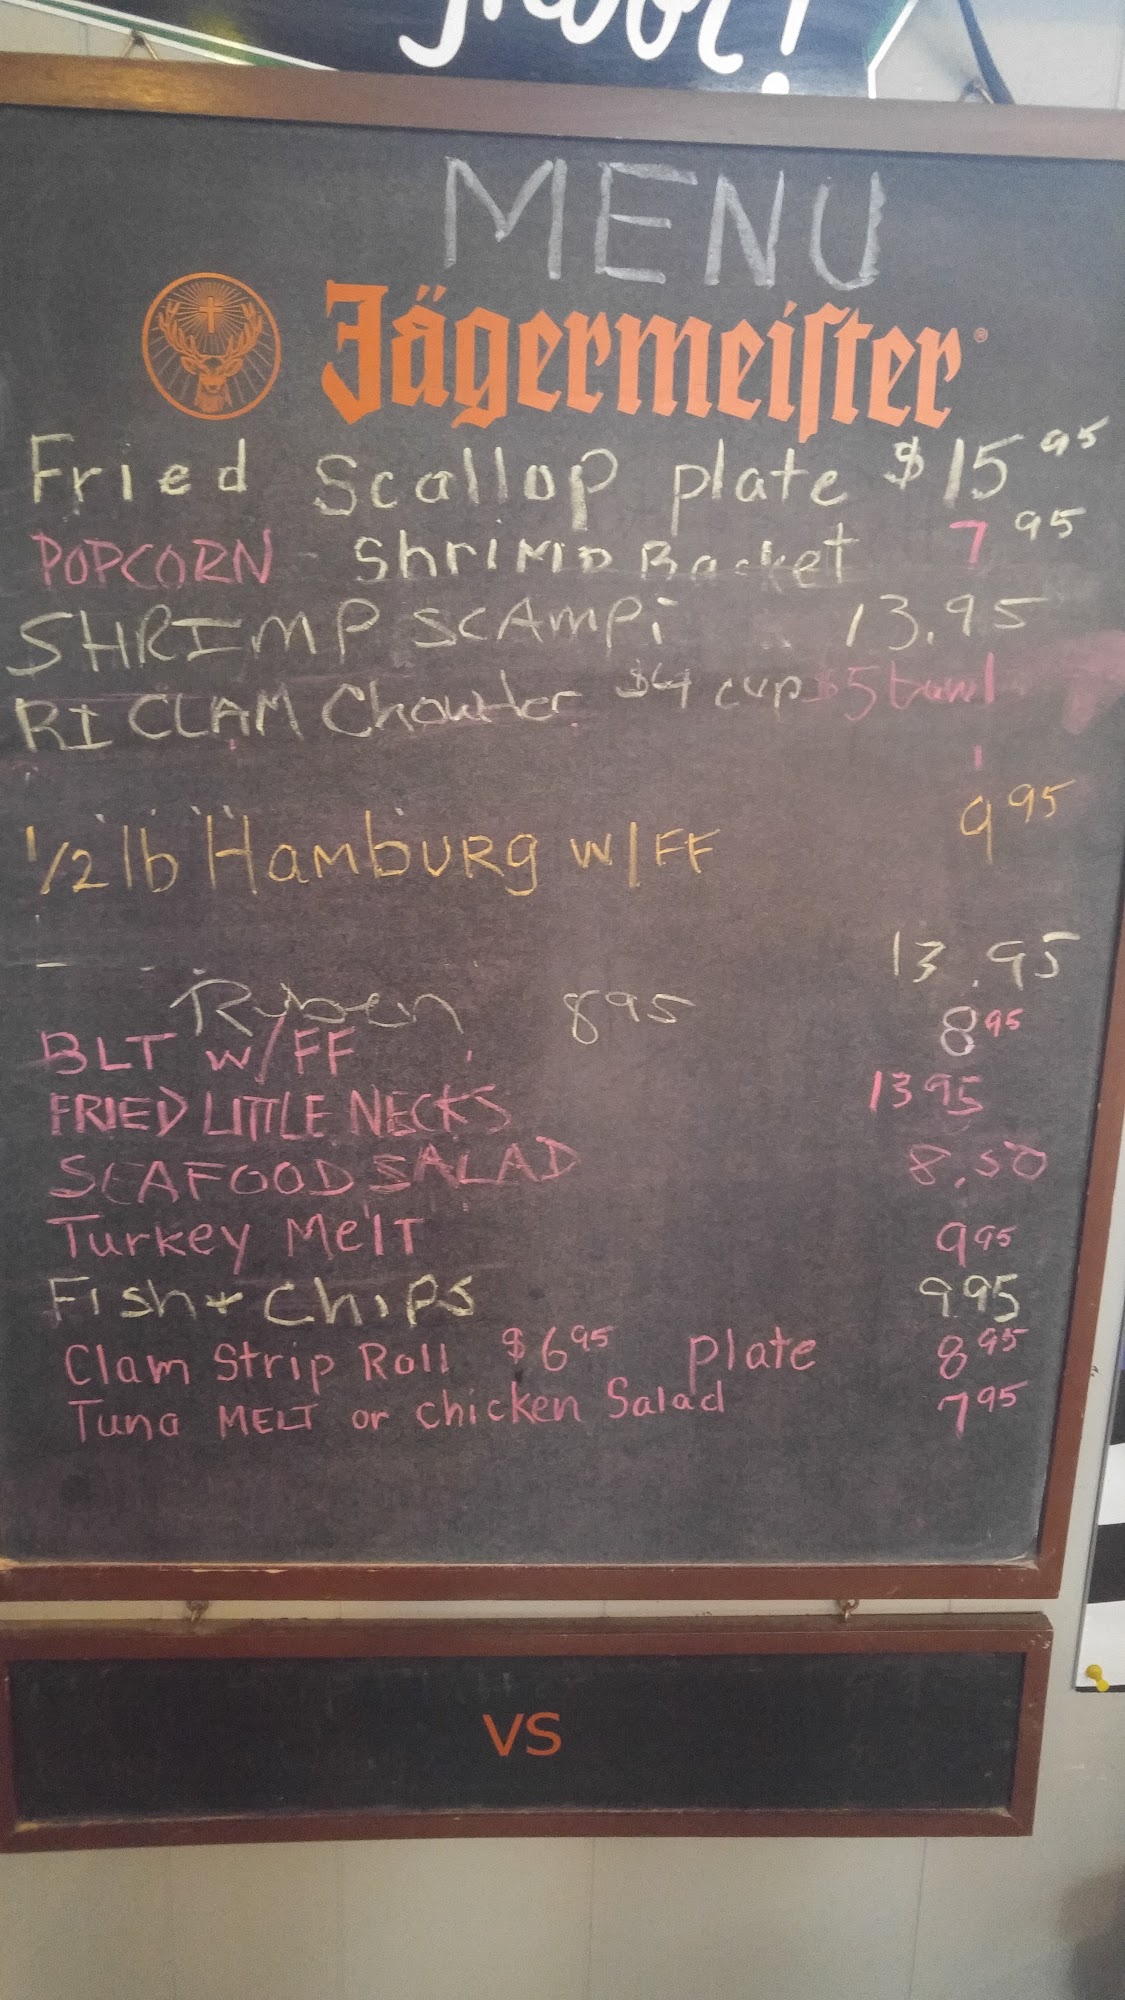 MENU
Jägermeiſter®
Fried Scallop plate $15.95
POPCORN Shrimp Basket 7 95
SHRIMP SCAmpi 13.95
RI CLAM Chowder $4 cup $5 bowl
1/2 lb HambURg w/FF 9 95
13.95
Ruben 8 95
BLT w/FF 8 95
FRIED LITTLE NECKS 13 95
SEAFOOD SALAD 8.50
Turkey MelT 9 95
Fish + Chips 9.95
Clam Strip Roll $6 95 plate 8 95
Tuna MELT or chicken Salad 7 95
VS